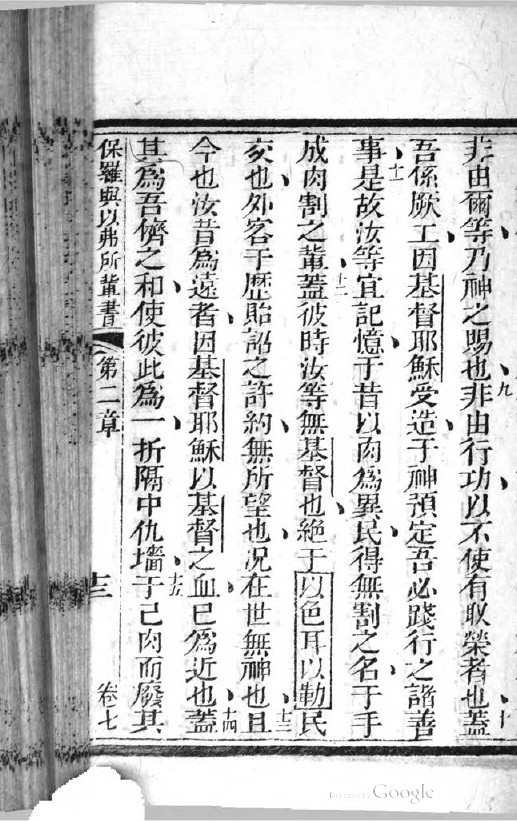 非由爾等乃神之賜也非由行功以不使有取榮者也蓋
九
十
吾係厥工因基督耶穌受造于神預定吾必踐行之諸善
事是故汝等宜記憶于昔以肉爲異民得無割之名于手
十一
成肉割之輩蓋彼時汝等無基督也絶于以色耳以勒民
十二
交也外客于歷貽詔之許約無所望也况在世無神也且
十三
今也汝昔爲遠者因基督耶穌以基督之血已爲近也蓋
十四
其爲吾儕之和使彼此爲一折隔中仇墻于己肉而廢其
十五
保羅與以弗所輩書
第二章
十三
卷七
Digitized by Google